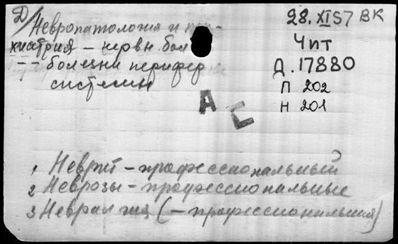 Д/Невропатология и пси-
хиатрия – нервн бол
-- болезни перифер
системы
28.XI57 ВК
Чит
Д.17880
П 202
Н 201
А Е
1 Неврит – профессиональный
2 Неврозы – профессиональные
3 Невралгия (– профессиональная)